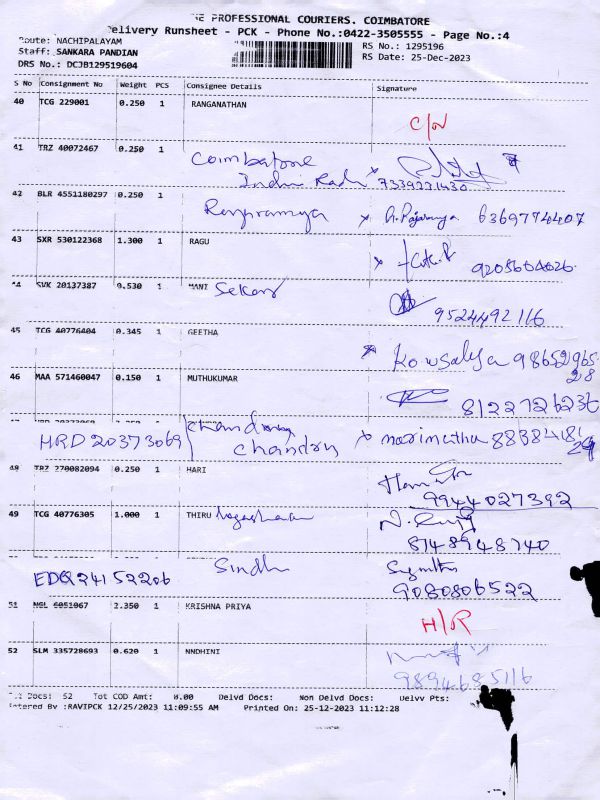 THE PROFESSIONAL COURIERS. COIMBATORE
Delivery Runsheet - PCK - Phone No.:0422-3505555 - Page No.:4
Route: NACHIPALAYAM
Staff: SANKARA PANDIAN RS No.: 1295196
DRS No.: DCJB129519604 RS Date: 25-Dec-2023
S No Consignment No Weight PCS Consignee Details Signature
40 TCG 229001 0.250 1 RANGANATHAN
41 TRZ 40072467 0.250 1 Coimbatore
7339221430
42 BLR 4551180297 0.250 1 6369774407
43 SXR 530122368 1.300 1 RAGU
9205604026
44 SVK 20137387 0.530 1 MANI Sekar
9524492116
45 TCG 40776404 0.345 1 GEETHA
Kowsalya 98652965
28
46 MAA 571460047 0.150 1 MUTHUKUMAR
8122726236
HRD 20373069 chandru marimuthu 88384181
48 TRZ 270082094 0.250 1 HARI
9944027392
49 TCG 40776305 1.000 1 THIRU
8748948740
EDQ 24152206 Sindhu
9080806522
51 NGL 6051067 2.350 1 KRISHNA PRIYA
H/R
52 SLM 335728693 0.620 1 NNDHINI
9894685116
Docs: 52 Tot COD Amt: 0.00 Delvd Docs: Non Delvd Docs: Delvv Pts:
Entered By :RAVIPCK 12/25/2023 11:09:55 AM Printed On: 25-12-2023 11:12:28